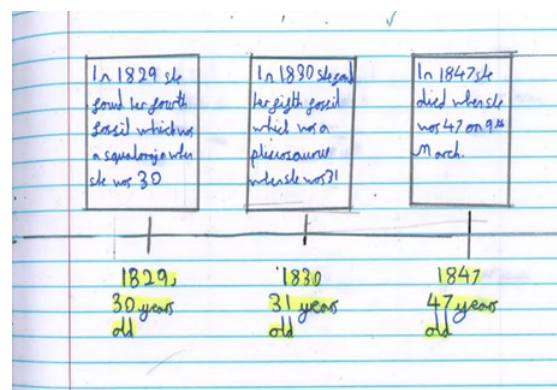 In 1829 she
found her fourth
fossil which was
a squaloraja when
she was 30
In 1830 she found
her fifth fossil
which was a
plesiosaurus
when she was 31
In 1847 she
died when she
was 47 on 9th
March.
1829,
30 years
old
1830
31 years
old
1847
47 years
old